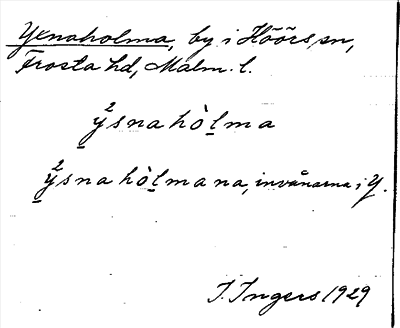 Yxnaholma, by i Höörs sn,
Frosta hd, Malm. l.
ýsnahòlma
ýsnahòlmana, invånarna i Y.
I. Ingers 1929